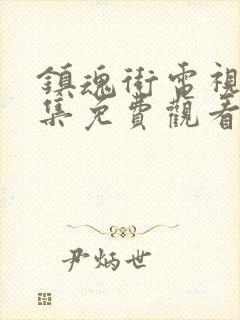 鎮魂街電視
集免費觀看
尹炳世